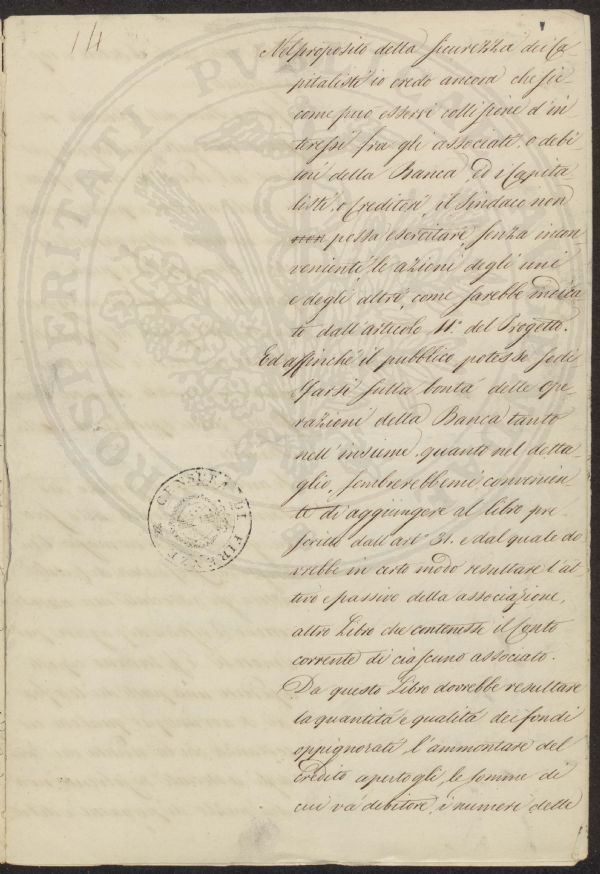 14
Nel proposito della sicurezza dei Ca-
pitalisti io credo ancora che sic
come può esservi collisione d'in
teressi fra gli associati, o debi-
tori della Banca, ed i Capita
listi, o Creditori, il Sindaco non
non possa esercitare, senza incon-
venienti le azioni degli uni
e degli altri, come sarebbe indica
to dall'articolo 11° del Progetto.
Ed affinché il pubblico potesse sodi
sfarsi sulla bontà delle ope
razioni della Banca tanto
nell'insieme, quanto nel detta-
glio, sembrerebbemi convenien-
te di aggiungere al libro pre
scritto dall'art° 31. e dal quale do
vrebbe in certo modo resultare l'at
tivo e passivo della associazione,
altro Libro che contenesse il Conto
corrente di ciascuno associato.
Da questo Libro dovrebbe resultare
la quantità e qualità dei fondi
oppignorati, l'ammontare del
Credito apertogli, le somme di
cui và debitore, i numeri delle
PROSPERITATI PUBLICAE
CENSURA DI FIRENZE